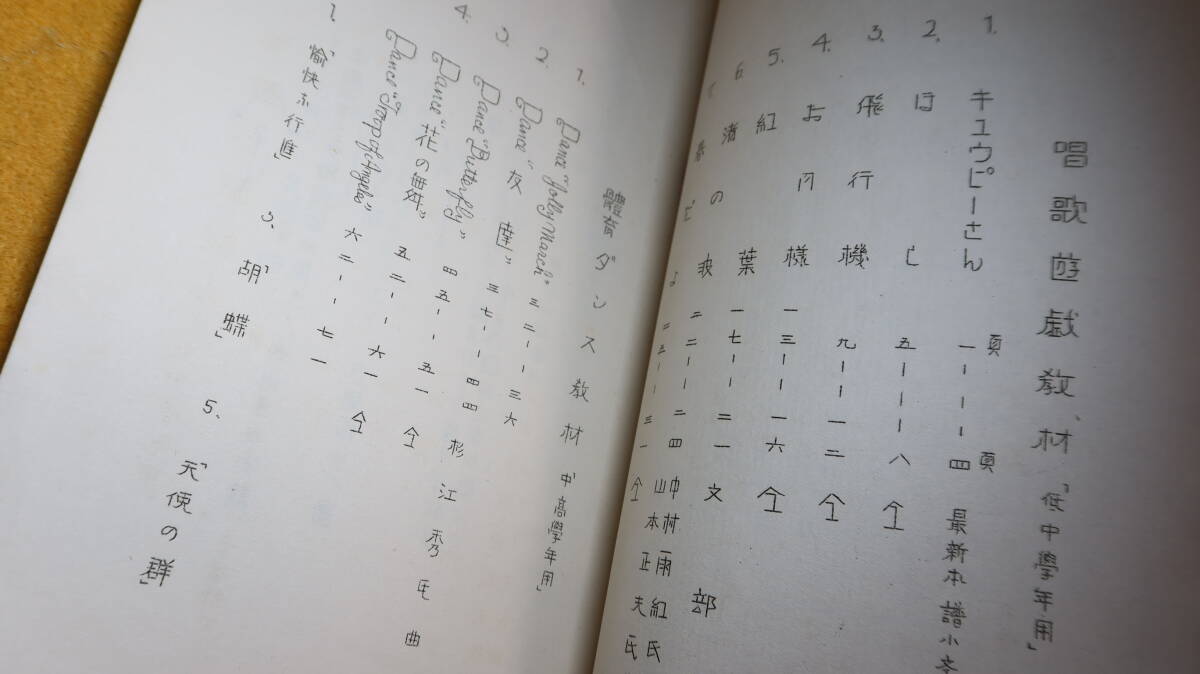 唱歌遊戯教材「低中學年用」
頁 頁
1. キュウピーさん 一——四 最新本譜小
2. は と 五——八 仝
3. 飛行機 九——一二 仝
4. お月様 一三——一六 仝
5. 紅葉 一七——二一 文部
6. 渚の 二二——二四 中村雨紅氏 山本正夫氏
二五——三一 仝
體育ダンス教材 「中高學年用」
1. Dance "Jolly March" 三二——三六
2. Dance "友達" 三七——四四 杉江秀氏曲
3. Dance "Butterfly" 四五——五一 仝
4. Dance "花の舞" 五二——六一 仝
Dance "Troop of Angels" 六二——七一
1.「愉快な行進」 3.「胡蝶」 5.「天使の群」